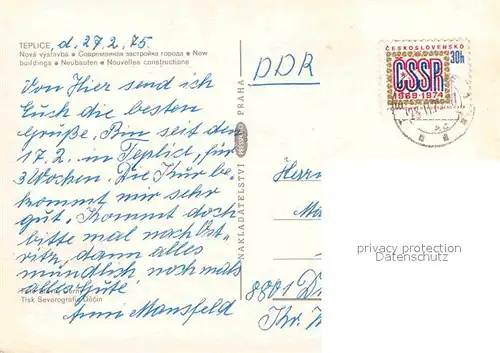 TEPLICE, d. 27.2.75.
Nová výstavba ● Современная застройка города ● New
buildings ● Neubauten ● Nouvelles constructions
Von Hier send ich
Euch die besten
Grüße. Bin seit dem
17.2. in Teplice, für
3 Wochen. Die Kur be-
kommt mir sehr
gut. Kommt doch
bitte mal nach Ost-
ritz, dann alles
mündlich nochmals
alles Gute!
Tisk Severografia Děčín
Anni Mansfeld
NAKLADATELSTVÍ PRESSFOTO PRAHA
DDR
ČESKOSLOVENSKO
30h
ČSSR
1969-1974
Herrn
8801
Kr.
privacy protection
Datenschutz